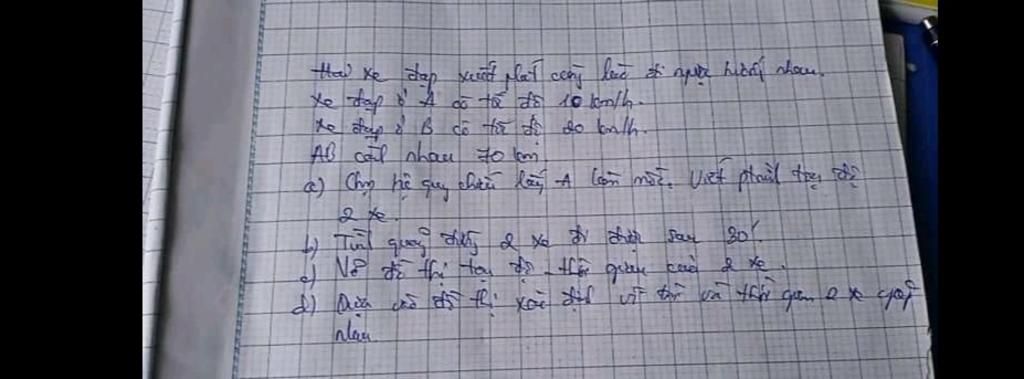 Hai xe đạp xuất phát cùng lúc đi ngược hướng nhau.
Xe đạp ở A có tốc độ 10 km/h.
Xe đạp ở B có tốc độ 20 km/h.
AB cách nhau 70 km
a) Chọn hệ quy chiếu lấy A làm mốc. Viết phương trình tọa độ
2 xe.
b) Tính quãng đường 2 xe đi được sau 30'.
c) Vẽ đồ thị tọa độ - thời gian của 2 xe.
d) Dựa vào đồ thị xác định vị trí và thời gian 2 xe gặp
nhau